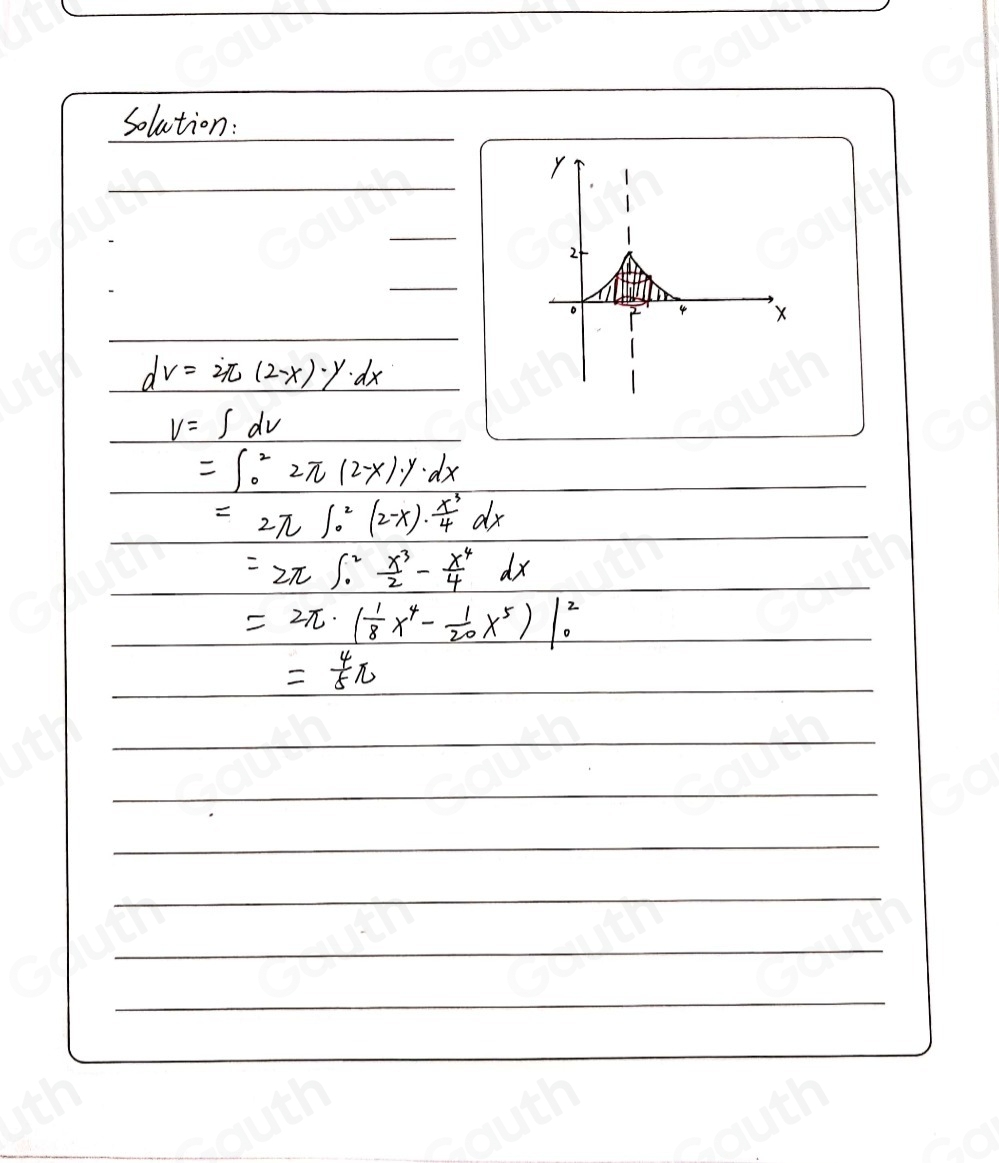 Solution:
y
2
0
2
4
x
dv = 2π (2-x)·y·dx
V = ∫ dv
= ∫₀² 2π (2-x)·y·dx
= 2π ∫₀² (2-x)·x³/4 dx
= 2π ∫₀² x³/2 - x⁴/4 dx
= 2π·(1/8 x⁴ - 1/20 x⁵) |₀²
= 4/5 π
Gauth